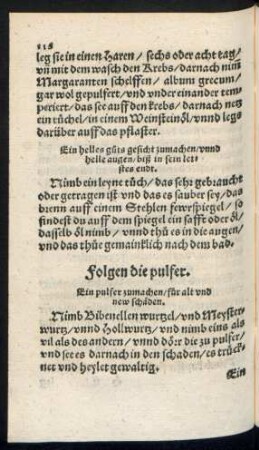 118
leg sie in einen Haren/ sechs oder acht tag/
vn mit dem wasch den Krebs/ darnach nim
Margaranten schelffen/ album grecum/
gar wol gepulfert/ vnd vndereinander tem-
periert/ das see auff den krebs/ darnach netz
ein tüchel/ in einem Weinsteinöl/ vnnd legs
darüber auff das pflaster.
Ein helles güts gesicht zumachen/ vnnd
helle augen/ biß in sein let-
stes endt.
Nimb ein leyne tüch/ das sehr gebraucht
oder getragen ist vnd das es sauber sey/ das
brenn auff einem Stehlen fewrspiegel/ so
findest du auff dem spiegel ein safft oder öl/
dasselb öl nimb/ vnnd thů es in die augen/
vnd das thůe gemainklich nach dem bad.
Folgen die pulfer.
Ein pulfer zumachen/ für alt vnd
new schäden.
Nimb Bibenellen wurtzel/ vnd Meyster-
wurtz/ vnnd Hollwurtz/ vnd nimb eins als
vil als des andern/ vnnd dörr die zu pulfer/
vnd see es darnach in den schaden/ es trück-
net vnd heylet gewaltig.
Ein